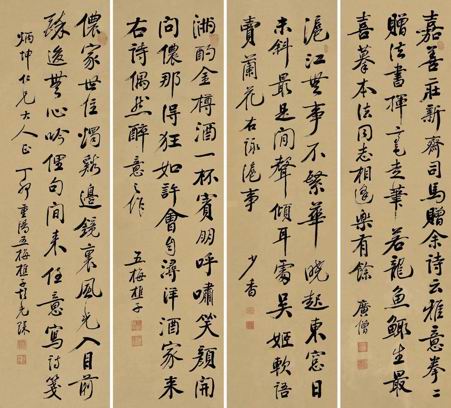 嘉善莊新齋司馬贈余詩云雅意拳〻
贈法書揮毫走筆若龍魚鯫生最
喜摹本法同志相逢樂有餘 廣僧
滬江無事不繁華曉起東窓日
未斜最是閒聲傾耳處吳姬軟語
賣蘭花右詠滬事 少香
湘酌金樽酒一杯賓朋呼嘯笑顏開
問儂那得狂如許會自潯洋酒家來
右詩偶然醉意之作 五梅樵子
儂家世住濁谿邊鏡裏風光入目前
疎逸無心吟俚句閒來任意寫詩箋
炳坤仁兄大人正 丁卯重陽五梅樵子